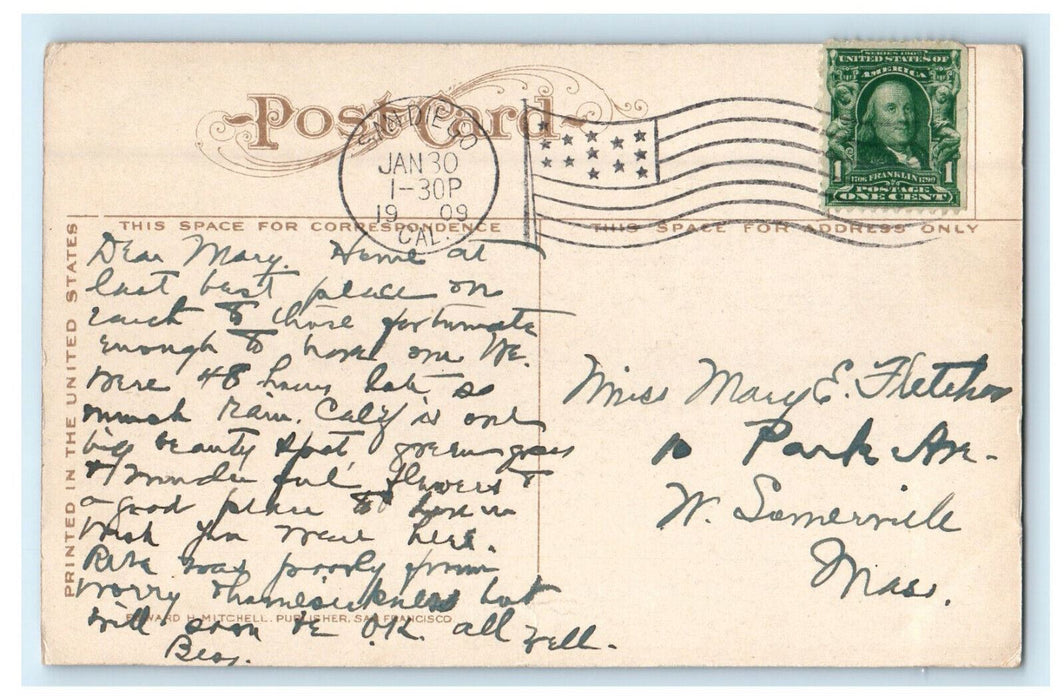 Post Card
SAN DIEGO
JAN 30
1-30P
19 09
CAL.
SERIES 1902
UNITED STATES OF
AMERICA
1706 FRANKLIN 1790
1 POSTAGE 1
ONE CENT
THIS SPACE FOR CORRESPONDENCE
THIS SPACE FOR ADDRESS ONLY
PRINTED IN THE UNITED STATES
Dear Mary. Home at
last best place on
earth to those fortunate
enough to have one We.
were 48 hours late so
much rain. Calif is one
big beauty spot, green grass
& wonderful flowers &
a good place to live in
Wish you were here.
Rita was poorly from
worry & homesickness but
will soon be O.K. all well.
Bess.
EDWARD H. MITCHELL, PUBLISHER, SAN FRANCISCO
Miss Mary E. Fletcher
10 Park Ave.
W. Somerville
Mass.